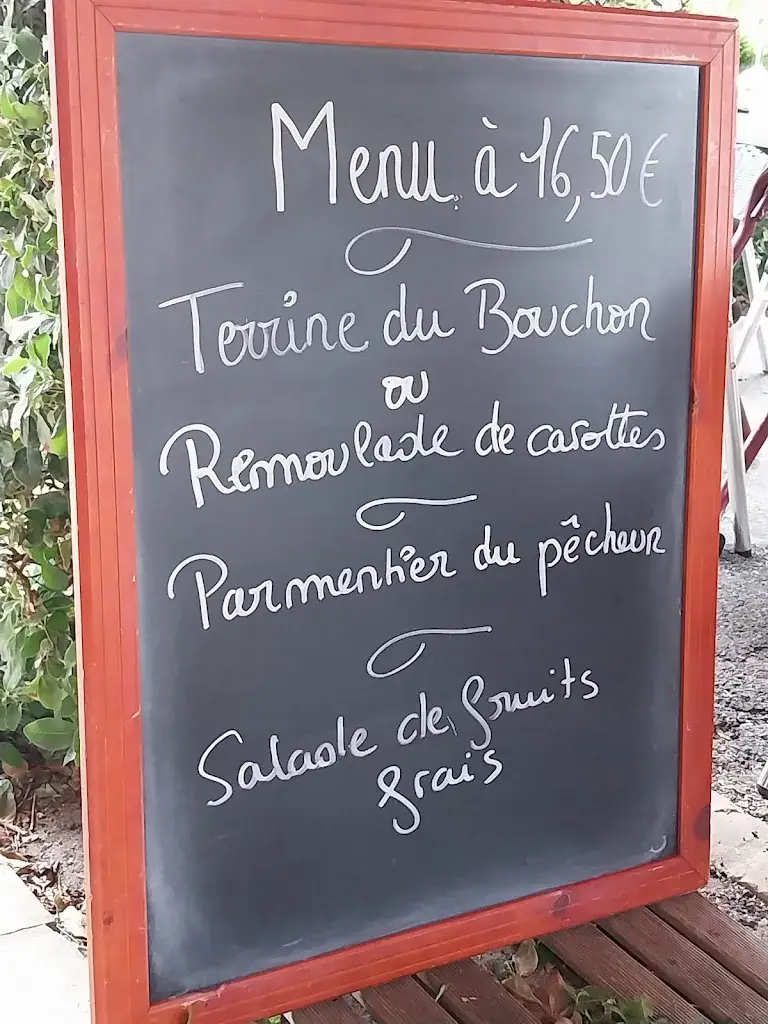 Menu à 16,50€
Terrine du Bouchon
ou
Remoulade de carottes
Parmentier du pêcheur
Salade de fruits
frais